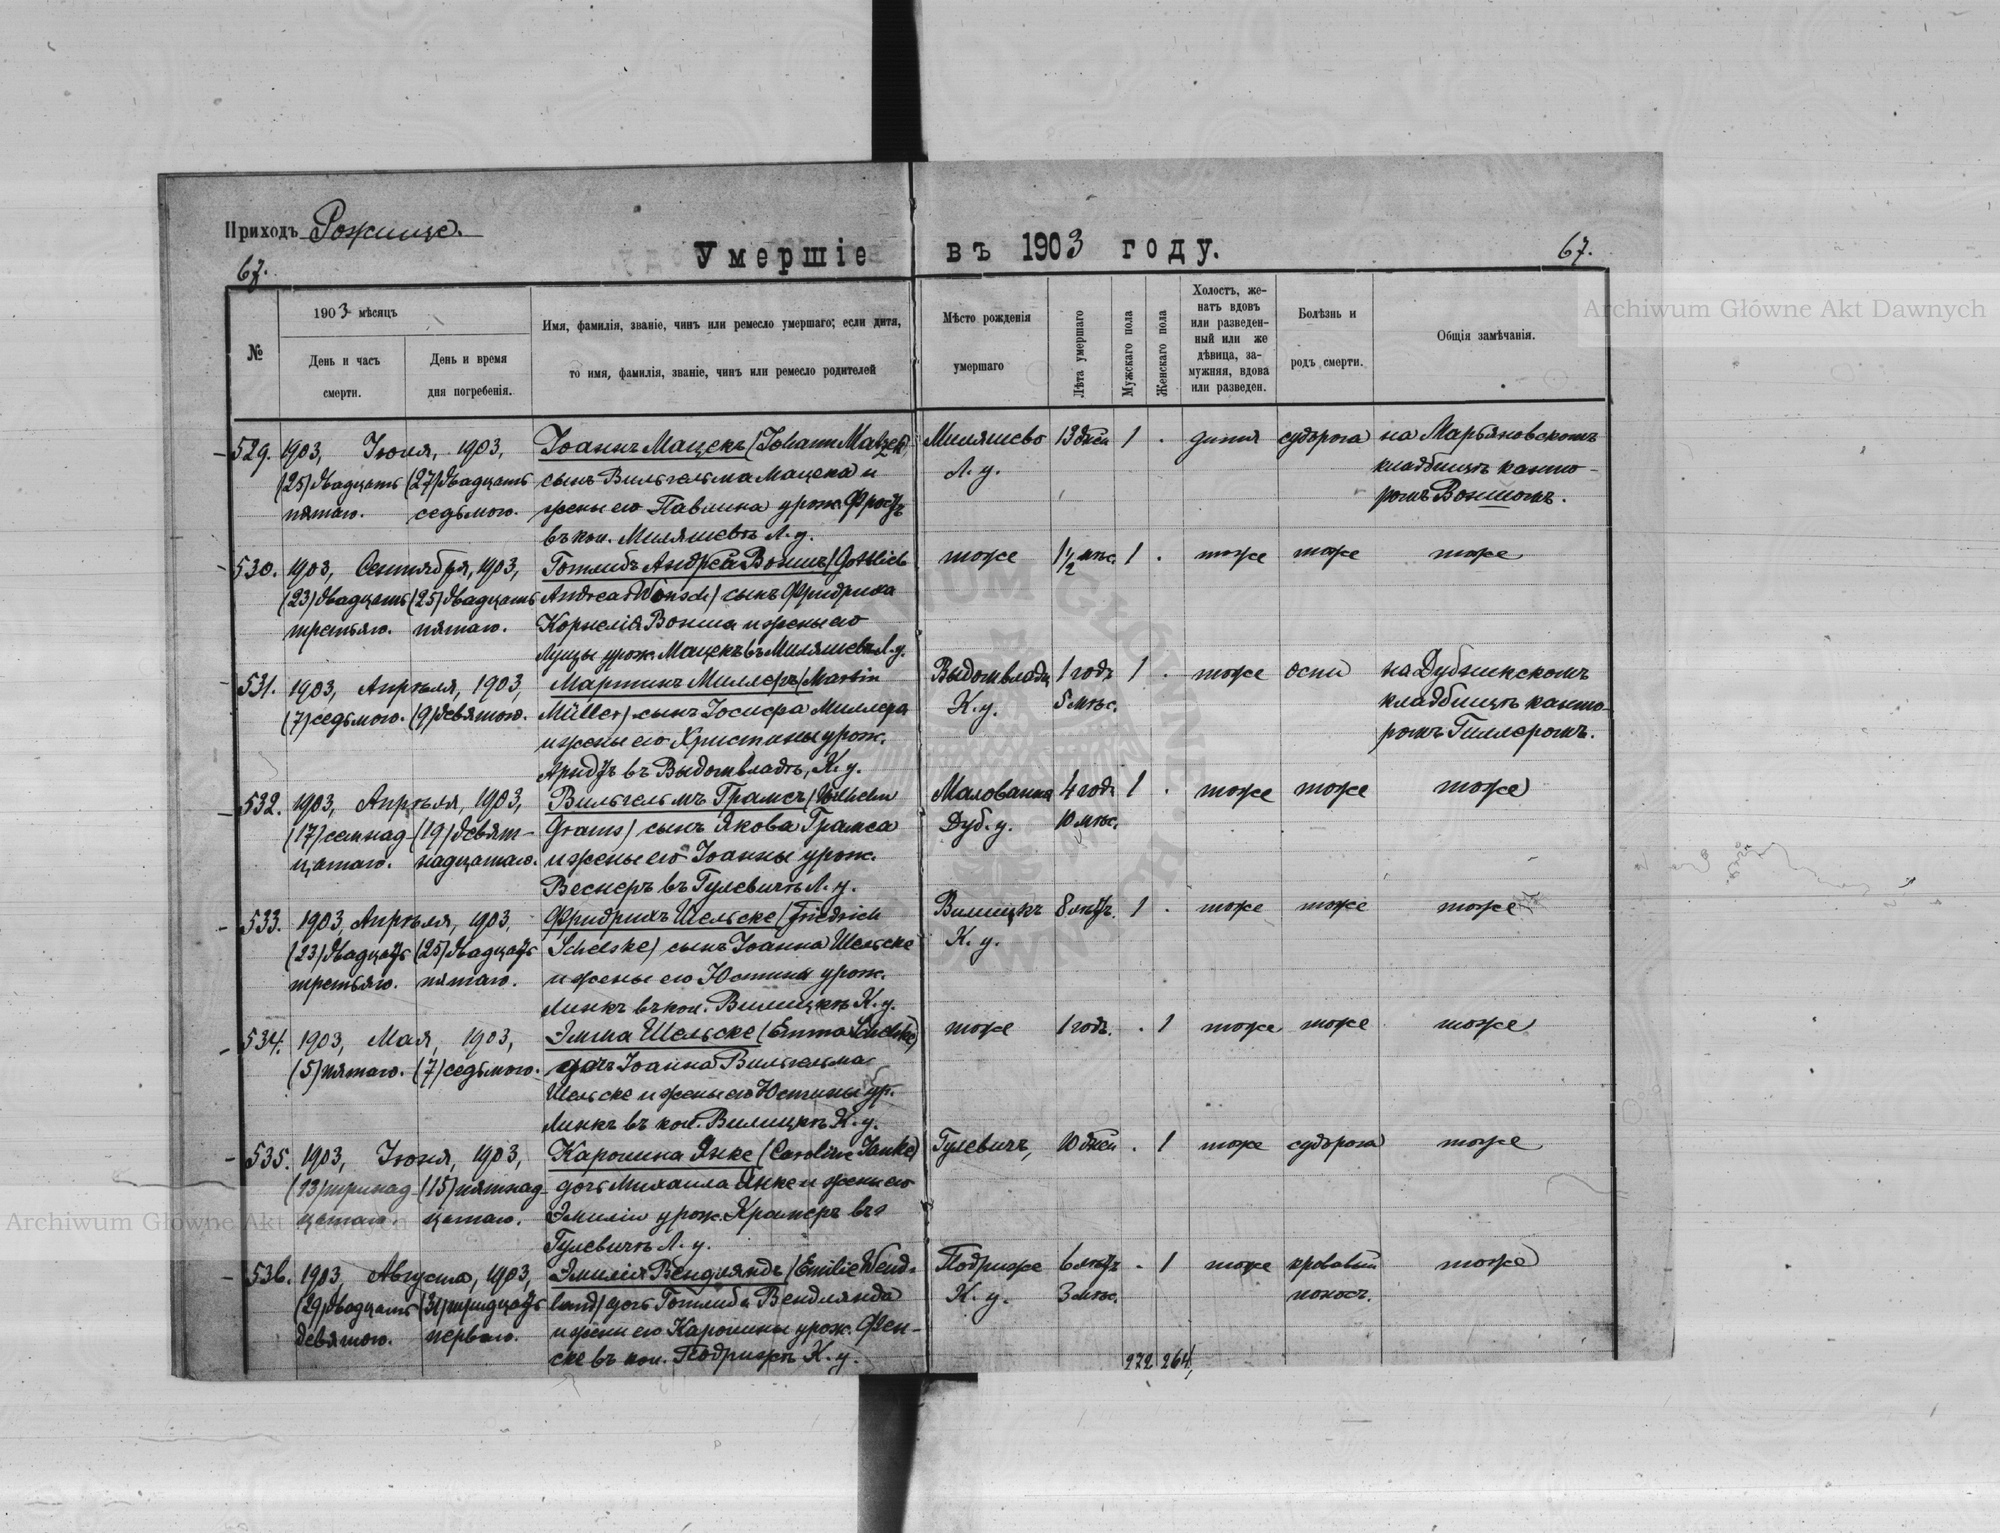 Приходъ Рожище.
Умершіе въ 1903 году.
67.
67.
№
1903 мѣсяцъ
День и часъ
смерти.
День и время
дня погребенія.
Имя, фамилія, званіе, чинъ или ремесло умершаго; если дитя,
то имя, фамилія, званіе, чинъ или ремесло родителей
Мѣсто рожденія
умершаго
Лѣта умершаго
Мужскаго пола
Женскаго пола
Холостъ, же-
натъ вдовъ
или разведен-
ный или же
дѣвица, за-
мужняя, вдова
или разведен.
Болѣзнь и
родъ смерти.
Общія замѣчанія.
Archiwum Główne Akt Dawnych
529. 1903, Іюня, 1903, Іоаннъ Мацекъ (Johann Matzek) Миляшево 13 дней 1 . дитя судорога на Марьяновскомъ
(25) двадцать (27) двадцать сынъ Вильгельма Мацека и Л. у. кладбищѣ канто-
пятаго. седьмого. жены его Павлина урож. Фростъ ромъ Воншомъ.
въ кол. Миляшевѣ Л. у.
530. 1903, Сентября, 1903, Готлибъ Андрей Воншъ (Gottlieb тоже 1 1/2 мѣс. 1 . тоже тоже тоже
(23) двадцать (25) двадцать Andreas Wonsch) сынъ Фридриха
третьяго. пятаго. Корнелія Вонша и жены его
Луизы урож. Мацекъ въ Миляшевѣ Л. у.
531. 1903, Апрѣля, 1903, Мартинъ Миллеръ (Martin 1 годъ 1 . тоже оспа на Дубнинскомъ
(7) седьмого. (9) девятого. Müller) сынъ Іосифа Миллера К. у. 5 мѣс. кладбищѣ канто-
и жены его Христины урож. ромъ Гиллеромъ.
въ К. у.
532. 1903, Апрѣля, 1903, Вильгельмъ Грамсъ (Wilhelm Малованка 4 года 1 . тоже тоже тоже
(17) семнад- (19) девят- Grams) сынъ Якова Грамса Дуб. у. 10 мѣс.
цатаго. надцатаго. и жены его Іоанны урож.
Веснеръ въ Гулевичѣ Л. у.
533. 1903, Апрѣля, 1903, Фридрихъ Шельске (Friedrich 8 лѣтъ. 1 . тоже тоже тоже
(23) двадцать (25) двадцать Schelske) сынъ Іоанна Шельске К. у.
третьяго. пятаго. и жены его Юстины урож.
Линкъ въ кол. К. у.
534. 1903, Мая, 1903, Эмма Шельске (Emma Schelske) тоже 1 годъ. . 1 тоже тоже тоже
(5) пятаго. (7) седьмого. дочь Іоанна Вильгельма
Шельске и жены его Юстины ур.
Линкъ въ кол. К. у.
535. 1903, Іюня, 1903, Каролина Янке (Caroline Janke) Гулевичъ, 10 дней . 1 тоже судорога тоже
(13) тринад- (15) пятнад- дочь Михаила Янке и жены его
цатаго. цатаго. Эмиліи урож. Крамеръ въ
Гулевичѣ Л. у.
536. 1903, Августа, 1903, Эмилія Вендляндъ (Emilie Wend- Подриже 6 лѣтъ . 1 тоже кровавый тоже
(29) двадцать (31) тридцать land) дочь Готлиба Вендлянда К. у. 3 мѣс. поносъ.
девятого. перваго. и жены его Каролины урож. Фен-
ске въ кол. Подрижѣ К. у.
272 264,
Archiwum Główne Akt Dawnych